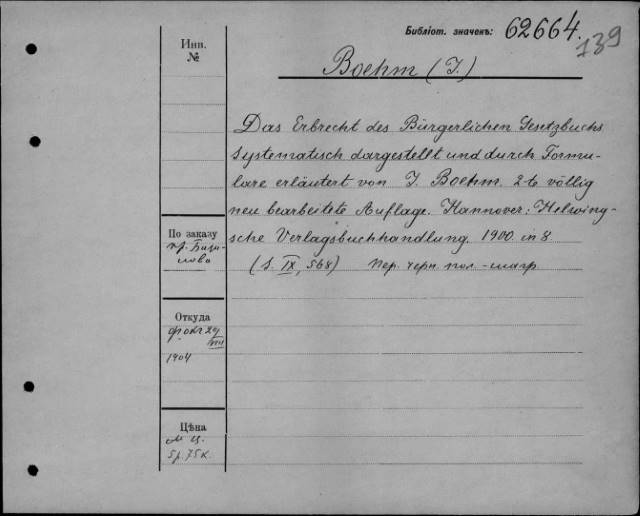 Библіот. значекъ: 62664.
139
Инв.
№
Boehm (J.)
Das Erbrecht des Bürgerlichen Gesetzbuchs
systematisch dargestellt und durch Formu-
lare erläutert von J. Boehm. 2-te völlig
neu bearbeitete Auflage. Hannover: Helwing-
sche Verlagsbuchhandlung. 1900. in 8.
(S. IX, 568) пер. черн. пол.-шагр.
По заказу
пр.
Откуда
1904
Цѣна
5 р. 75 к.